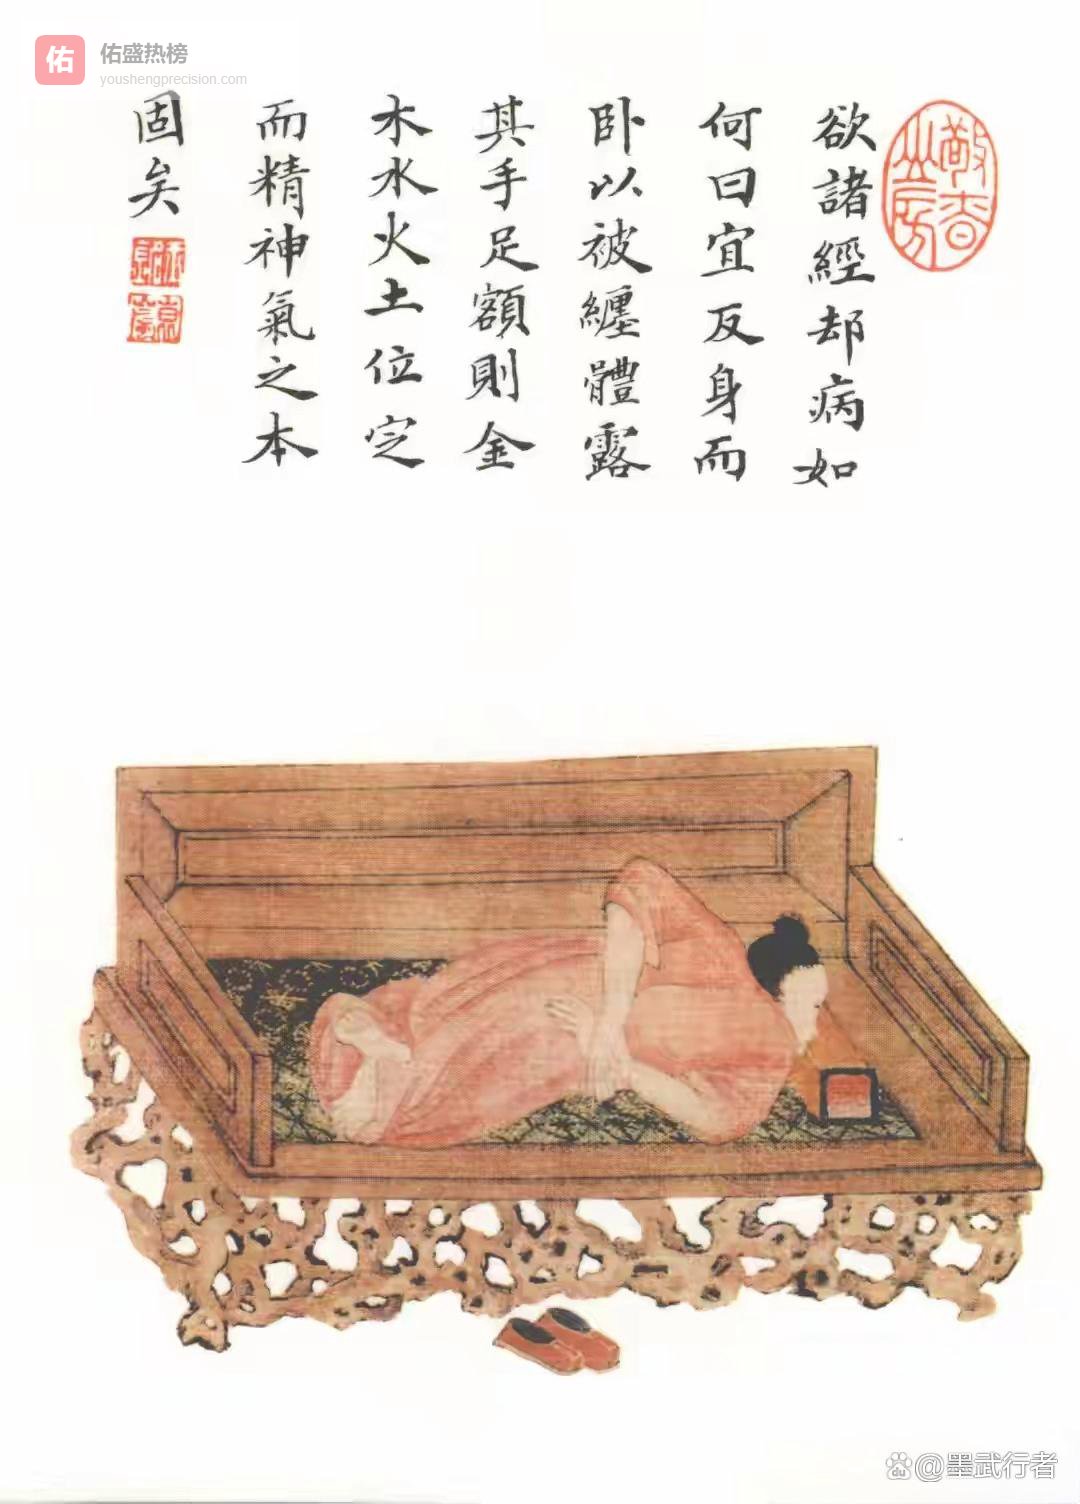 佑盛热榜
youshengprecision.com
欲諸經却病如
何曰宜反身而
卧以被纏體露
其手足額則金
木水火土位定
而精神氣之本
固矣
@墨武行者